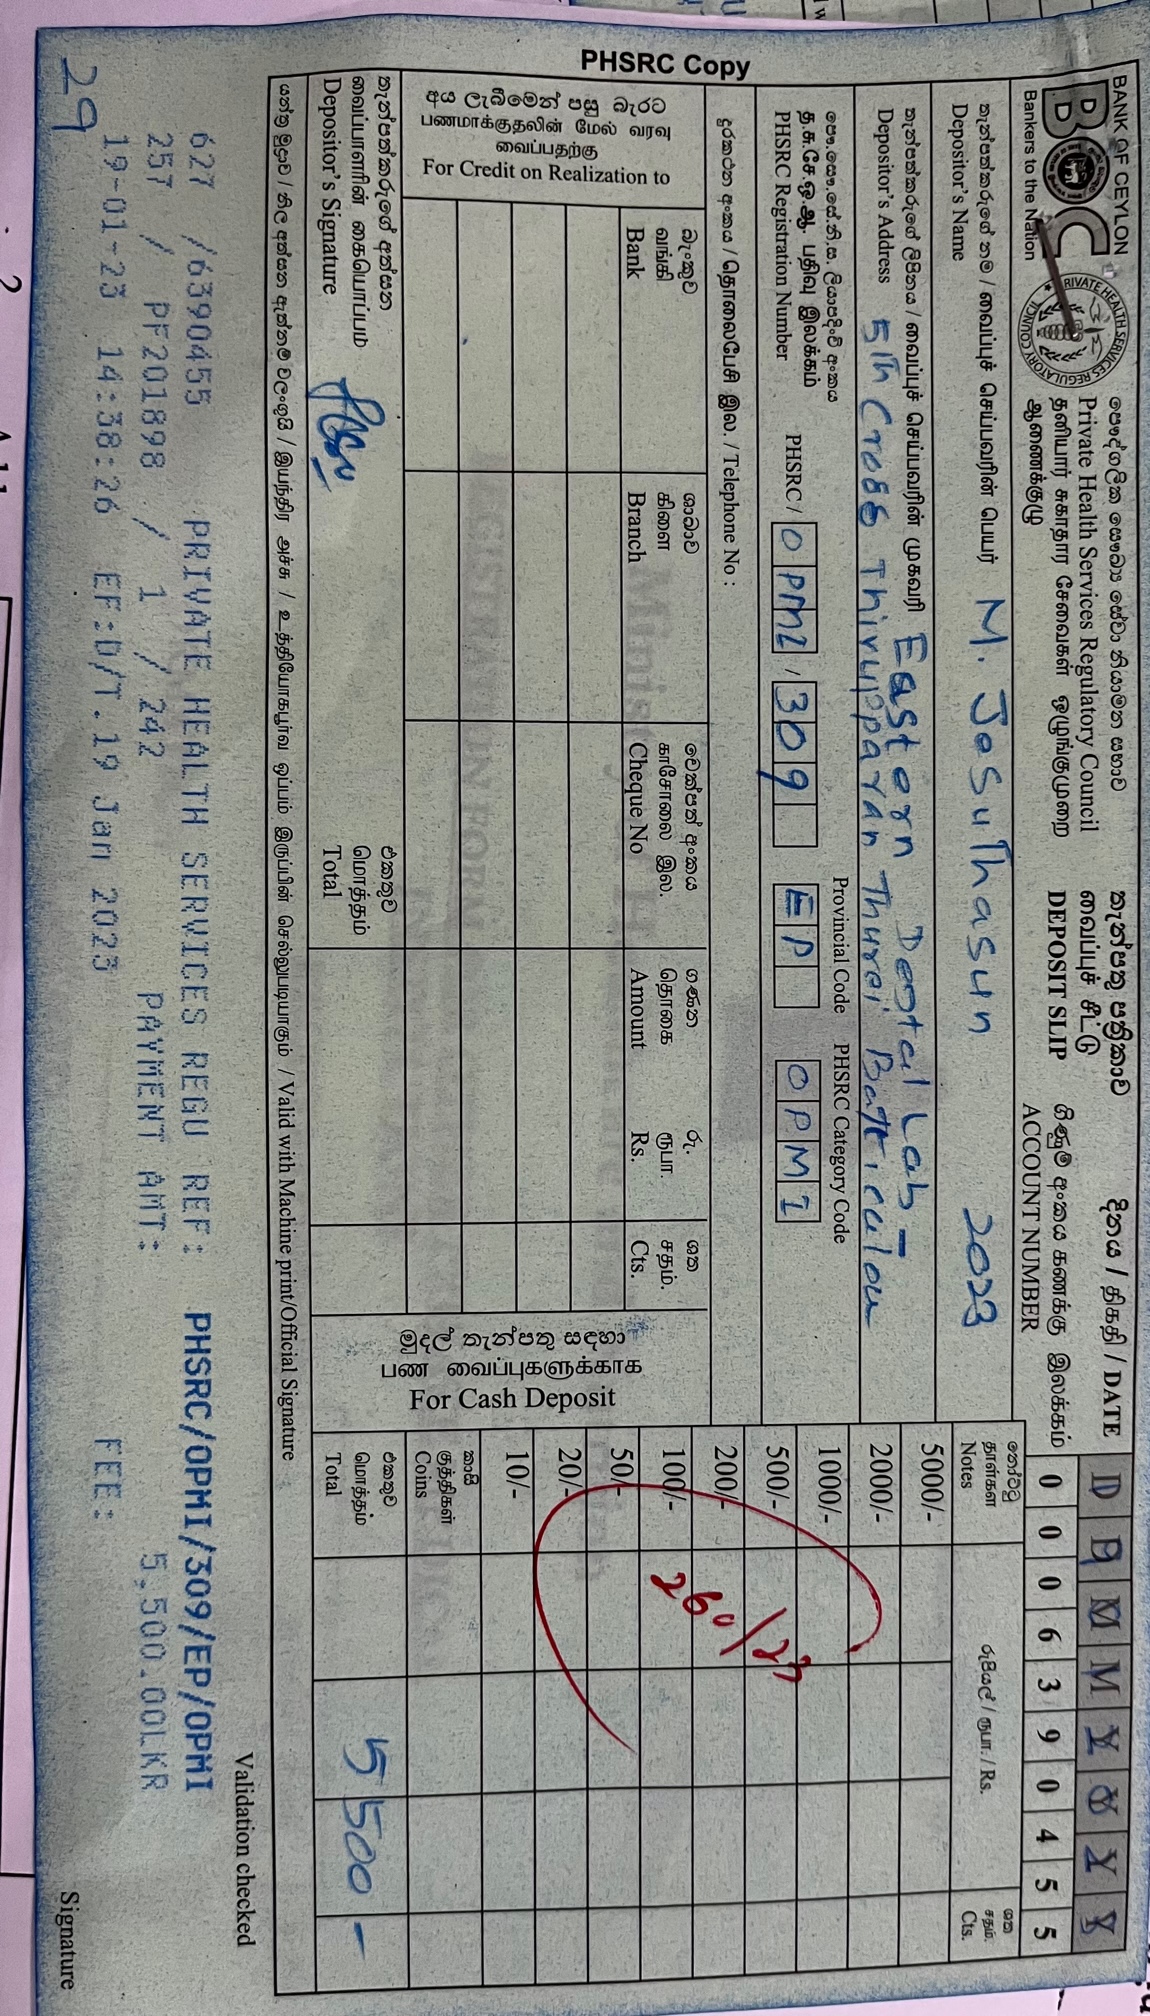 PHSRC Copy
BANK OF CEYLON
BOC
Bankers to the Nation
PRIVATE HEALTH SERVICES REGULATORY COUNCIL
පෞද්ගලික සෞඛ්‍ය සේවා නියාමන සභාව
Private Health Services Regulatory Council
தனியார் சுகாதார சேவைகள் ஒழுங்குமுறை
ஆணைக்குழு
තැන්පතු පත්‍රිකාව
வைப்புச் சீட்டு
DEPOSIT SLIP
දිනය / திகதி / DATE
D D M M Y Y Y Y
ගිණුම් අංකය கணக்கு இலக்கம்
ACCOUNT NUMBER
0 0 0 6 3 9 0 4 5 5
තැන්පත්කරුගේ නම / வைப்புச் செய்பவரின் பெயர்
Depositor's Name
M. Jesuthasun 2023
තැන්පත්කරුගේ ලිපිනය / வைப்புச் செய்பவரின் முகவரி
Depositor's Address
Eastern Dental Lab -
5Th Cross Thiruppavan Thurai Batticaloa
පෞ.සෞ.සේ.නි.ස. ලියාපදිංචි අංකය
த.சு.சே.ஒ.ஆ. பதிவு இலக்கம்
PHSRC Registration Number
PHSRC / OPMI / 309
Provincial Code
EP
PHSRC Category Code
OPMI
දුරකථන අංකය / தொலைபேசி இல. / Telephone No :
අය ලැබීමෙන් පසු බැරට
பணமாக்குதலின் மேல் வரவு
வைப்பதற்கு
For Credit on Realization to
බැංකුව
வங்கி
Bank
ශාඛාව
கிளை
Branch
චෙක්පත් අංකය
காசோலை இல.
Cheque No
ගණන
தொகை
Amount
රු.
ரூபா.
Rs.
ශත
சதம்.
Cts.
මුදල් තැන්පතු සඳහා
பண வைப்புகளுக்காக
For Cash Deposit
නෝට්ටු
தாள்கள்
Notes
රුපියල් / ரூபா. / Rs.
ශත
சதம்.
Cts.
5000/-
2000/-
1000/-
500/-
200/-
100/-
50/-
20/-
10/-
කාසි
குத்திகள்
Coins
එකතුව
மொத்தம்
Total
5 500 -
260/23
තැන්පත්කරුගේ අත්සන
வைப்பாளரின் கையொப்பம்
Depositor's Signature
එකතුව
மொத்தம்
Total
යන්ත්‍ර මුද්‍රාව / නිල අත්සන ඇත්නම් වලංගුයි / இயந்திர அச்சு / உத்தியோகபூர்வ ஒப்பம் இருப்பின் செல்லுபடியாகும் / Valid with Machine print/Official Signature
Validation checked
627 /6390455 PRIVATE HEALTH SERVICES REGU REF: PHSRC/OPMI/309/EP/OPMI
257 / PF201898 / 1 / 242 PAYMENT AMT: 5,500.00LKR
19-01-23 14:38:26 EF:D/T.19 Jan 2023 FEE:
29
Signature